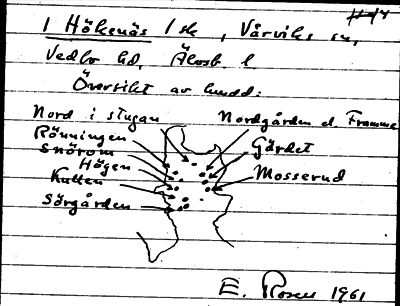 1 Hökenäs 1 sk, Vårviks sn,
Vedbo hd, Älvsb. l
Översikt av hmdd:
Nord i stugan
Nordgården el. Framme
Rönningen
Snörom
Gärdet
Högen
Mosserud
Kullen
Sörgården
E. Rosen 1961